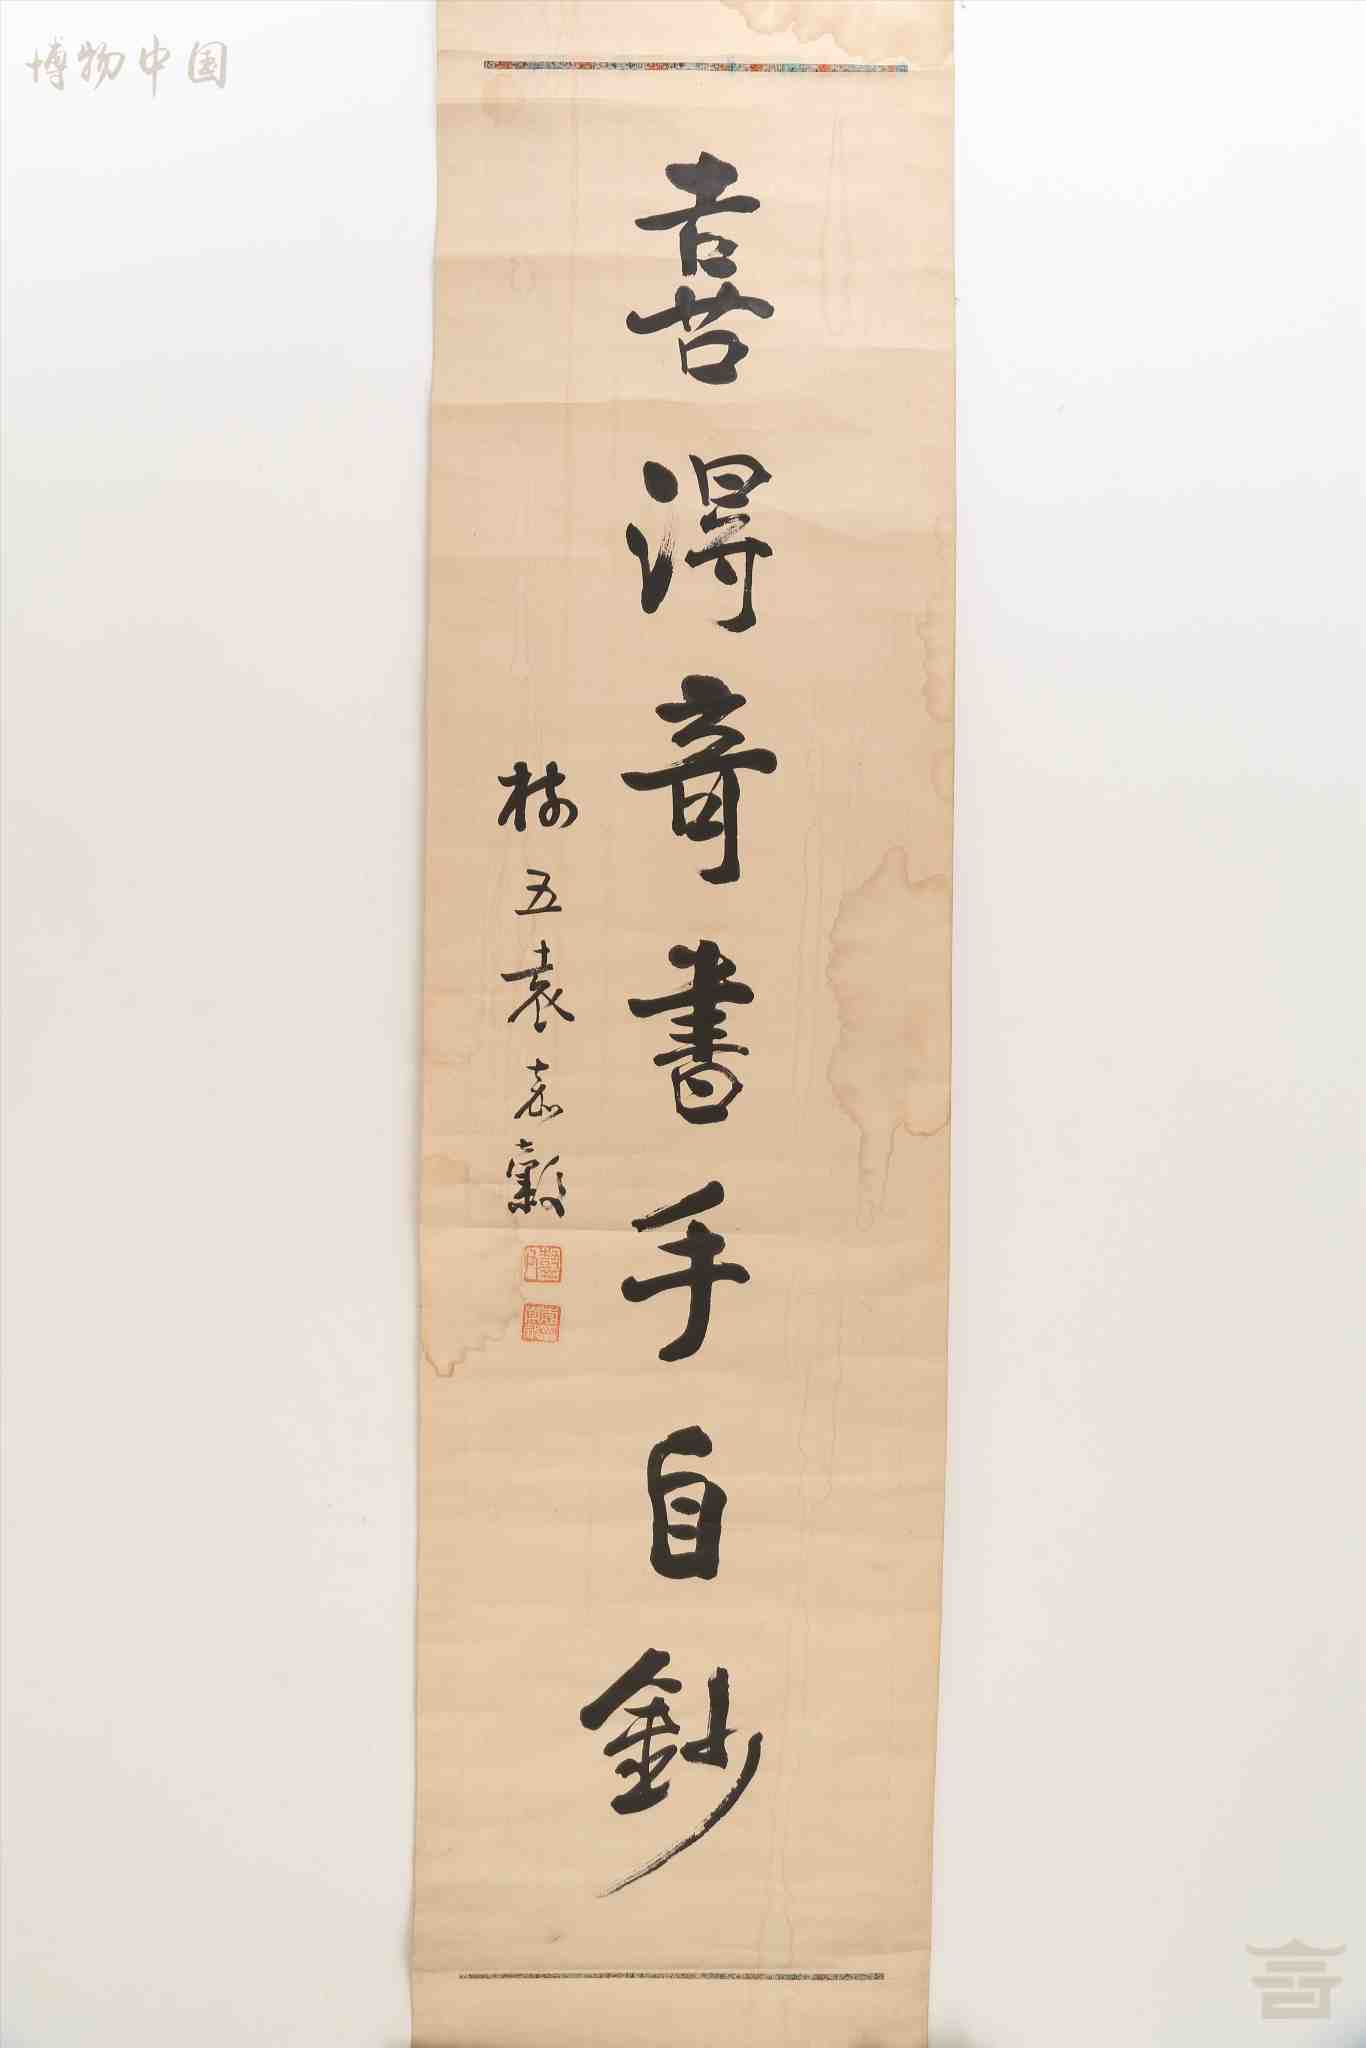 博物中国
喜得奇書手自鈔
樹五袁嘉穀